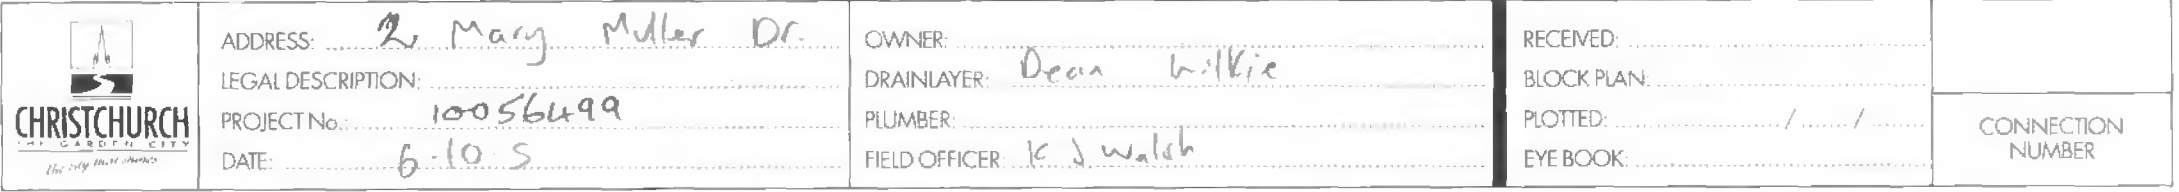 CHRISTCHURCH
THE GARDEN CITY
The city that shines
ADDRESS: 2 Mary Muller Dr.
LEGAL DESCRIPTION:
PROJECT No.: 10056499
DATE: 6-10 5
OWNER:
DRAINLAYER: Dean Wilkie
PLUMBER:
FIELD OFFICER K J Walsh
RECEIVED:
BLOCK PLAN:
PLOTTED: / /
EYE BOOK:
CONNECTION
NUMBER